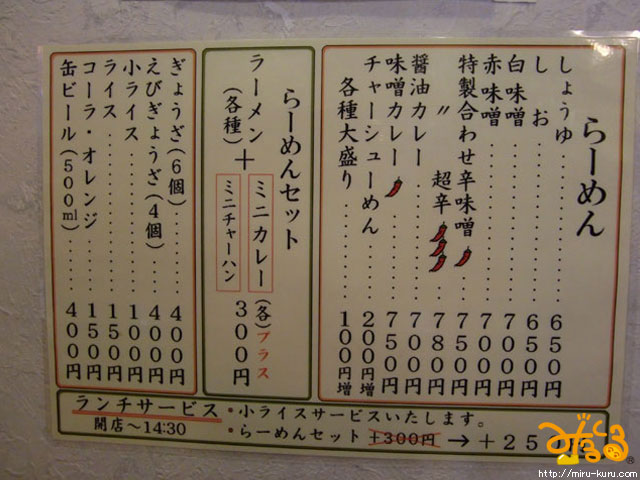 らーめん
しょうゆ………650円
しお………650円
白味噌………700円
赤味噌………700円
特製合わせ辛味噌………750円
〃 超辛………780円
醤油カレー………700円
味噌カレー………750円
チャーシューめん………200円増
各種大盛り………100円増
らーめんセット
ラーメン(各種)
+
ミニカレー
ミニチャーハン
(各)プラス
300円
ぎょうざ(6個)………400円
えびぎょうざ(4個)………400円
小ライス………100円
ライス………150円
コーラ・オレンジ………150円
缶ビール(500ml)………400円
ランチサービス
開店〜14:30
・小ライスサービスいたします。
・らーめんセット +300円 → +25
みるくる
http://miru-kuru.com/